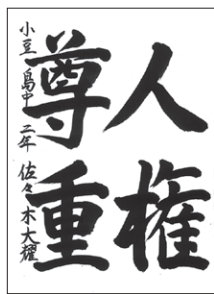 人権
尊重
小豆島中 二年 佐々木大耀